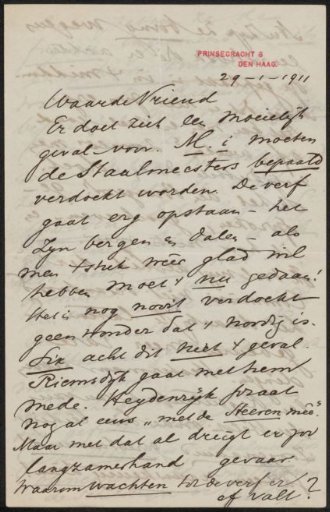 PRINSEGRACHT 6
DEN HAAG.
29-1-1911
Waarde Vriend
Er doet zich een moeielijk
geval voor. M. i moeten
de Staalmeesters bepaald
verdoekt worden. De verf
gaat erg opstaan – het
zyn bergen en dalen – als
men 't stuk weer glad wil
hebben moet 't nu gedaan!
Het is nog nooit verdoekt
geen wonder dat 't noodig is.
Six acht dit niet 't geval
Riemsdijk gaat met hem
mede. Heydenrijk praat
nog al eens "met de Heeren mee".
Maar met dat al dreigt er
langzamerhand gevaar
Waarom wachten tot de verf er
af valt?